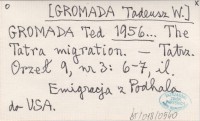 O X
[GROMADA Tadeusz W.]
GROMADA Ted 1956... The
Tatra migration. — Tatrz.
Orzeł 9, nr 3: 6-7, il
Emigracja z Podhala
do USA.